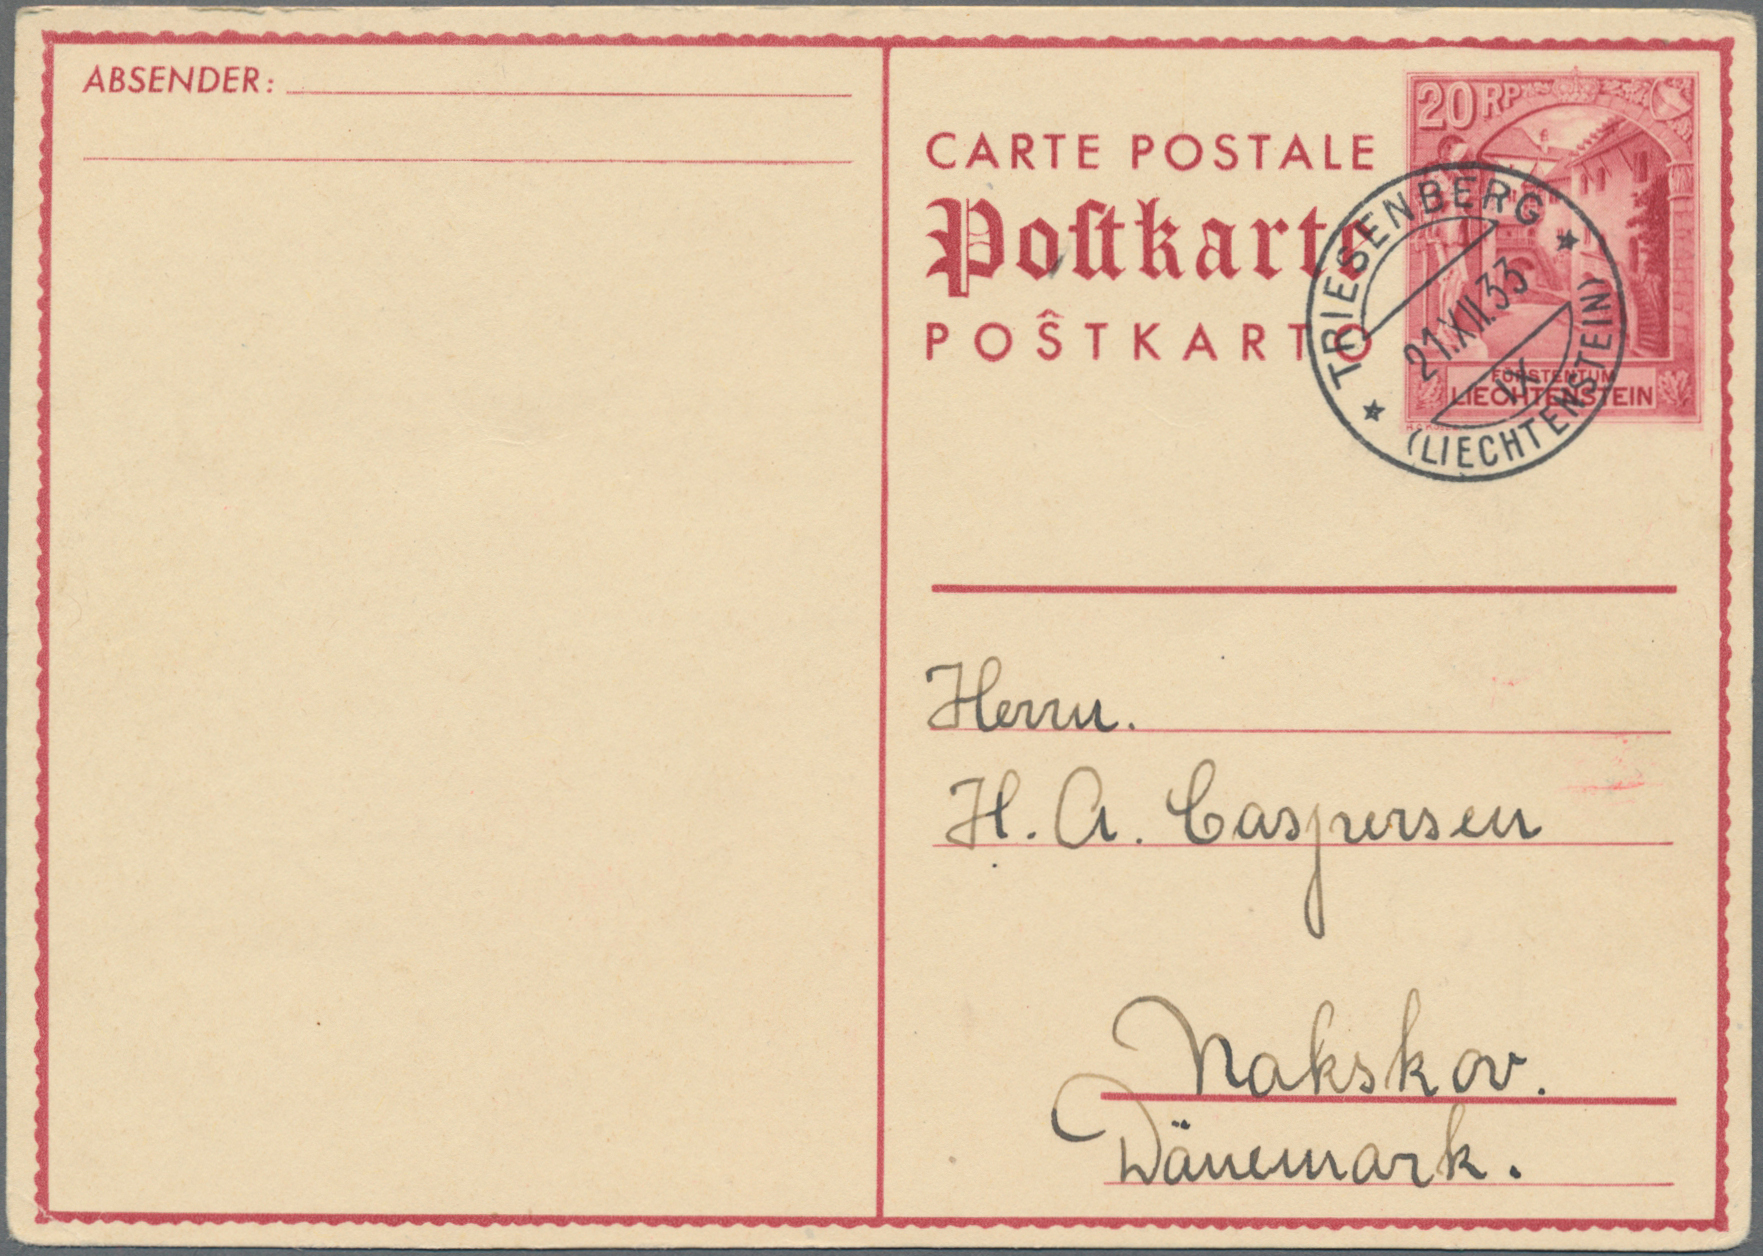 ABSENDER:
CARTE POSTALE
Poſtkarte
POŜTKARTO
20 RP
FÜRSTENTUM
LIECHTENSTEIN
TRIESENBERG
21.XII.33
IX
(LIECHTENSTEIN)
Herrn.
H. A. Caspersen
Nakskov.
Dänemark.